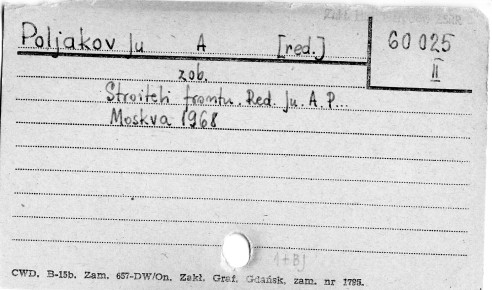 Poljakov Ju A [red.] 60 025
II
zob.
Stroiteli frontu. Red. Ju. A. P...
Moskva 1968
1+BJ
CWD. B-15b. Zam. 657-DW/On. Zakł. Graf. Gdańsk, zam. nr 1795.